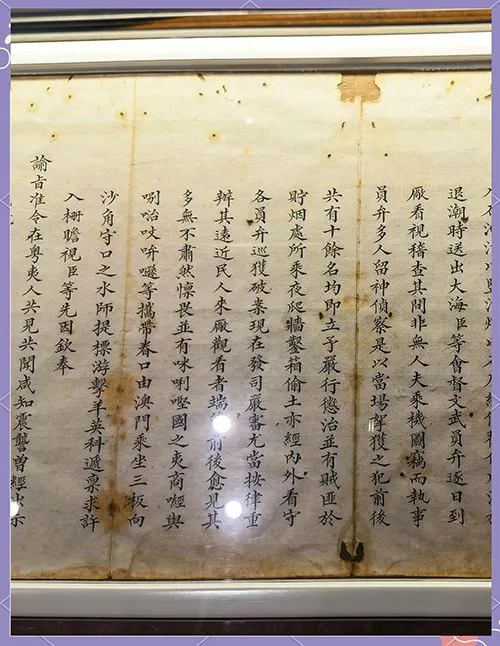 退潮時送出大海臣等會督文武員弁逐日到
廠看視稽查其間非無人夫乘機圖竊而執事
員弁多人留神偵察是以當場拏獲之犯前後
共有十餘名均即立予嚴行懲治並有賊匪於
貯烟處所乘夜爬牆鑿箱偷土亦經內外看守
各員弁巡獲破案現在發司嚴審尤當按律重
辦其遠近民人來廠觀看者端前後愈見其
多無不肅然懍畏並有咪唎國之夷商與
唎吱等攜帶眷口由澳門乘坐三板向
沙角守口之水師提標游擊羊英科遞禀求許
入柵瞻視臣等先因欽奉
諭旨准令在粵夷人共見共聞咸知震讋曾經出示